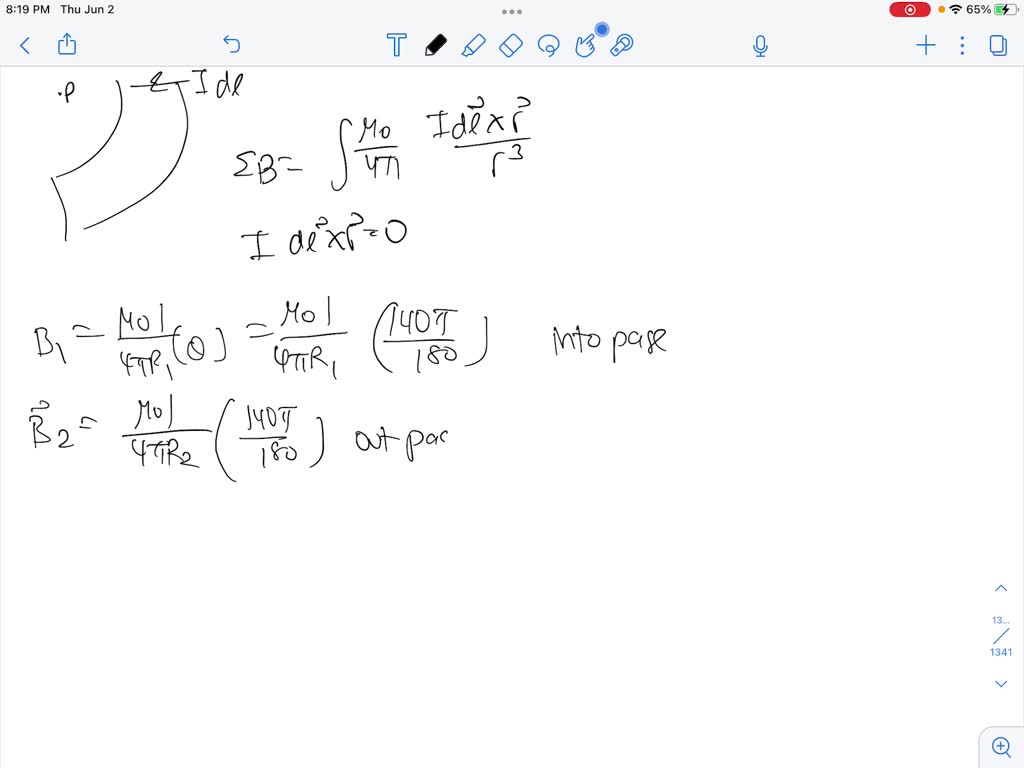 8:19 PM Thu Jun 2
65%
.P I dl
ΣB = ∫ μ0/4π I dl⃗ × r⃗ / r^3
I dl⃗ × r⃗ = 0
B1 = μ0 I / 4πR1 (θ) = μ0 I / 4πR1 (140π / 180) into page
B⃗2 = μ0 I / 4πR2 (140π / 180) out pag
13...
1341